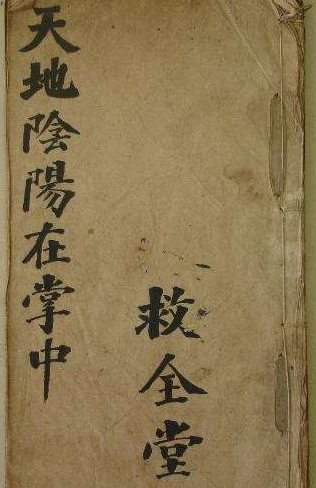 天地陰陽在掌中
救全堂